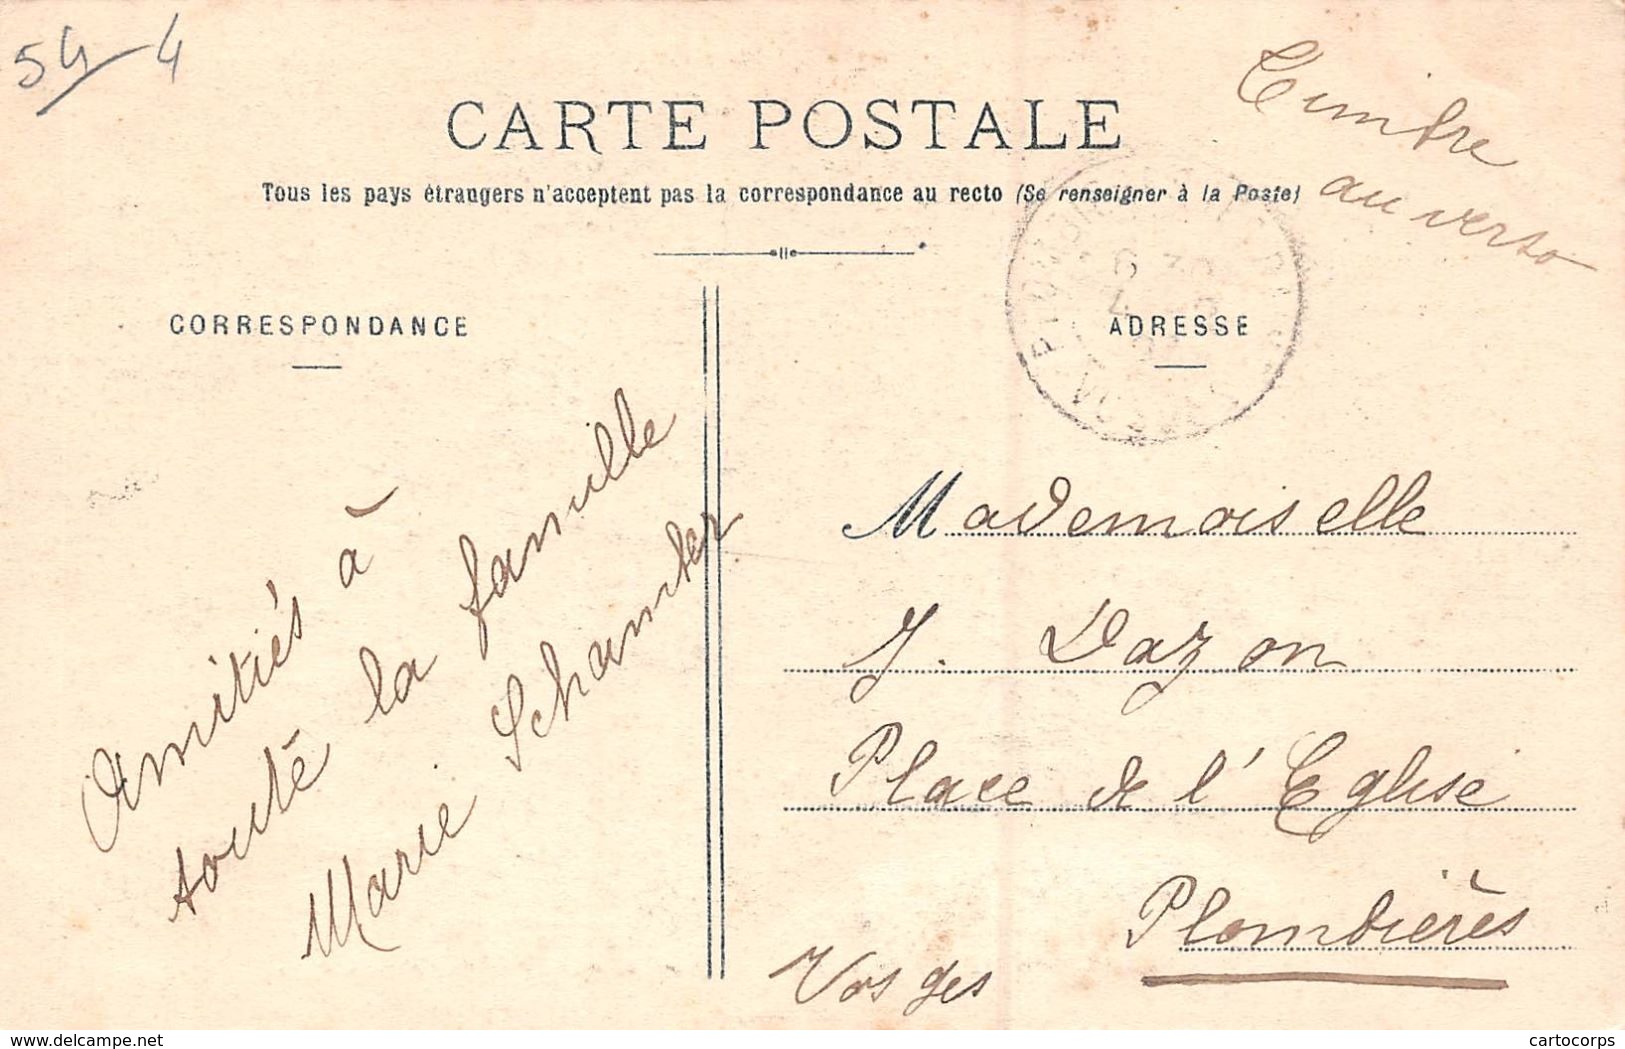 54-4
CARTE POSTALE
Tous les pays étrangers n'acceptent pas la correspondance au recto (Se renseigner à la Poste)
Timbre
au verso
CORRESPONDANCE
ADRESSE
Amitiés à
toute la famille
Marie Schamber
Mademoiselle
J. Dazon
Place de l'Eglise
Plombières
Vosges
www.delcampe.net
cartocorps